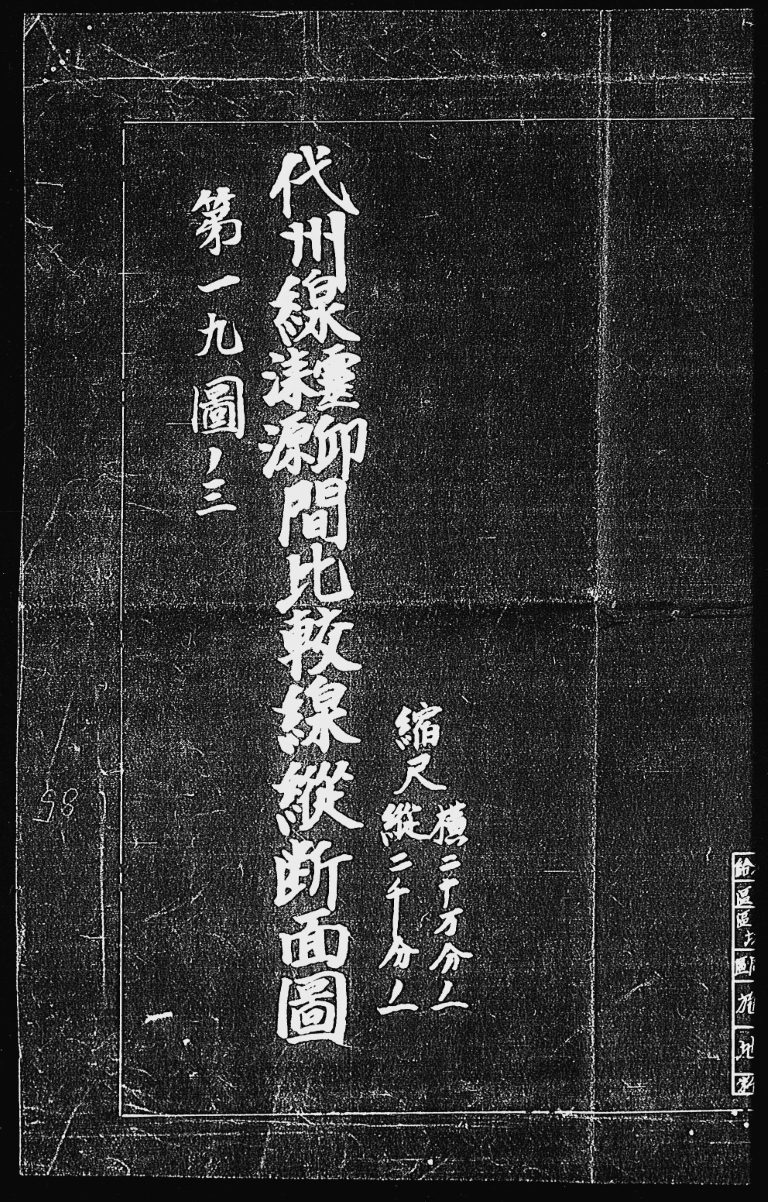 縮尺
横二十万分ノ一
縱二千分ノ一
代州線靈邱淶源間比較線縱断面圖
第一九圖ノ三